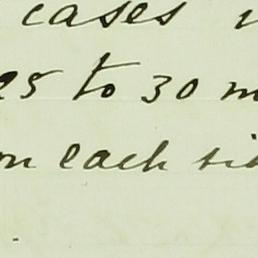 cases
25 to 30
on each